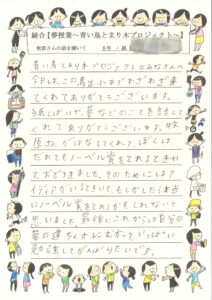 総合【夢授業～青い鳥とまり木プロジェクト～】
牧原さんの話を聞いて
青い鳥とまり木プロジェクトのみなさんへ
今日は、この馬出小までわざわざ来
てくれてありがとうございます。
紙しばいや、夢などのことを話して
くれて ありがとうございます。牧
原さんがはなしてくれて、ぼくは、
だれでもノーベル賞をとれるときい
ておどろきました。そのためにはア
イディアがいるときいて、もしかしたら本当
にノーベル賞をとれるかもしれないと
思いました。これからは自分の
夢の道すじにむかって いっぱい
勉強してがんばりたいです。